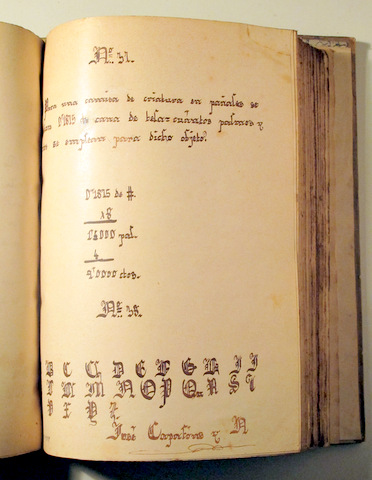 Nº 37.
Para una camisa de criatura en pañales se
0'1875 de cana de tela: cuantos palmos y
se emplean para dicho objeto?
0'1875 de #
× 8
1'5000 pal.
4
2'0000 ctos.
Nº 38.
B C Ch D E F G H I J
L Ll M N O P Q R S T
V X Y Z
José Capafons y N